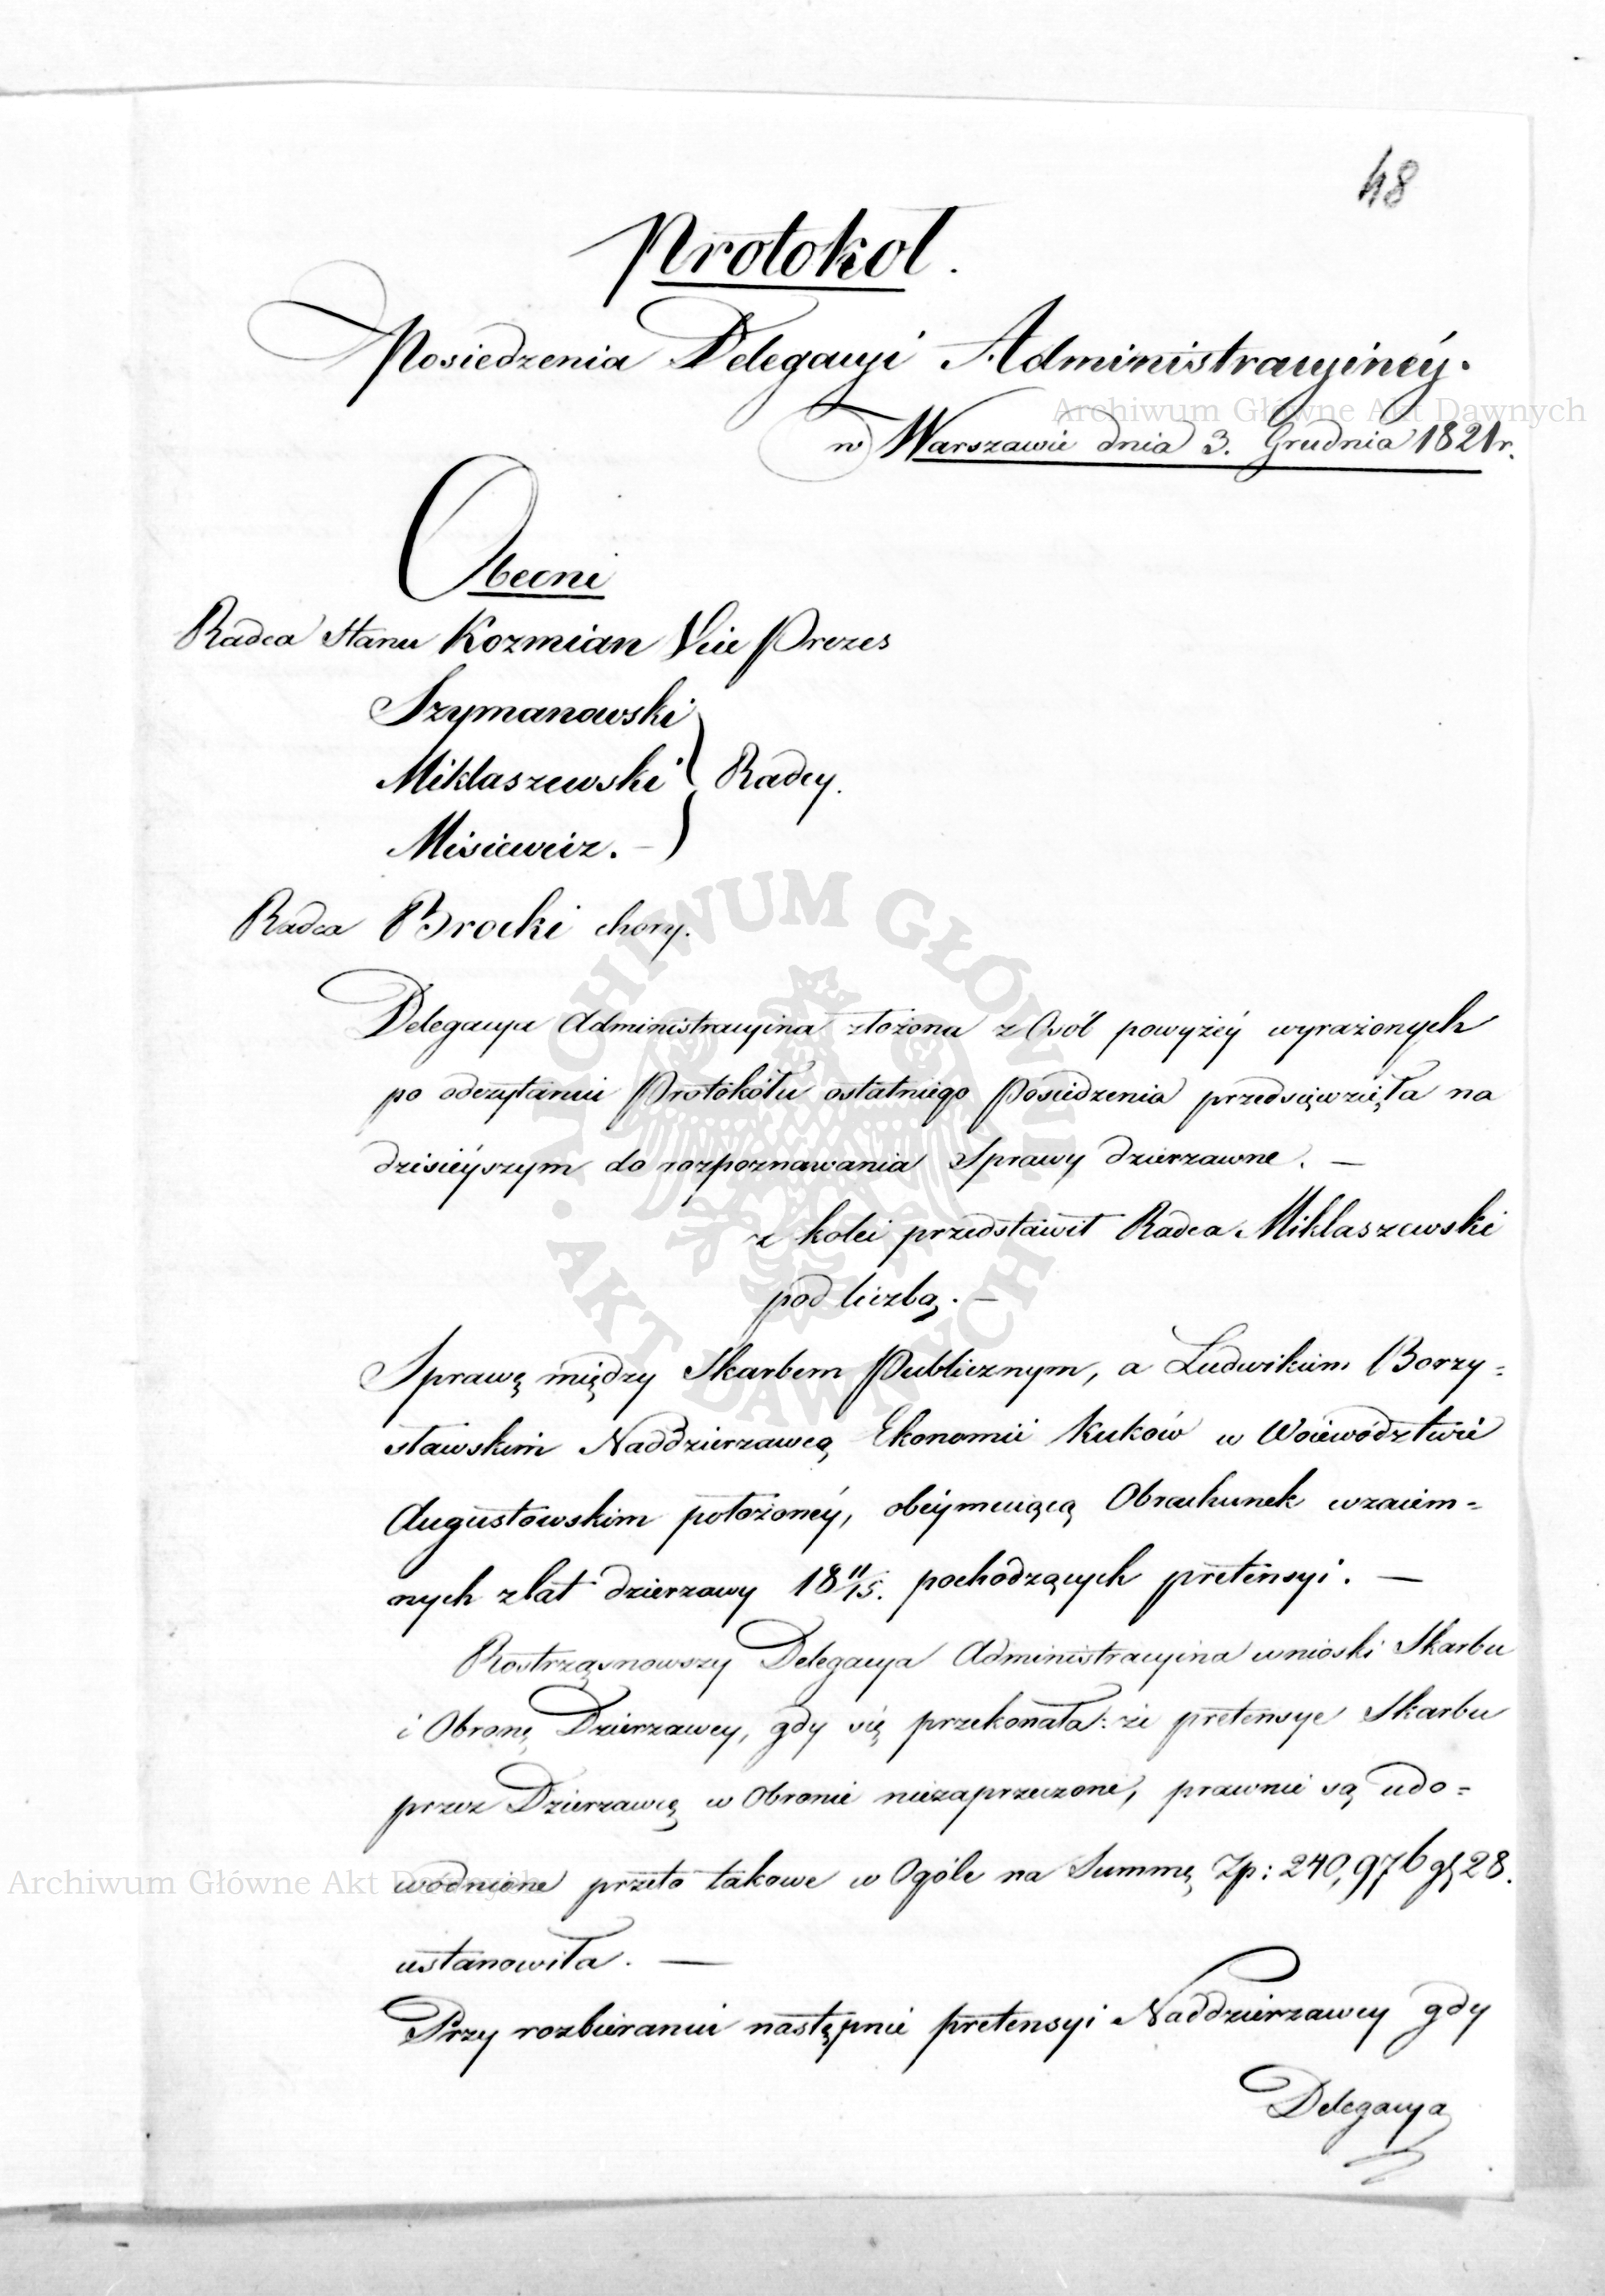 48
Protokol.
Posiedzenia Delegacyi Administracyinéy.
w Warszawie dnia 3. Grudnia 1821 r.
Obecni
Radca Stanu Kozmian Vice Prezes
Szymanowski
Miklaszewski } Radcy.
Misiewicz. –
Radca Brocki chory.
Delegacya Administracyina złożona z Osób powyżéy wyrażonych
po odczytaniu Protokółu ostatniego Posiedzenia przedsięwzięła na
dzisieyszym do rozpoznawania Sprawy dzierzawne. —
z kolei przedstawił Radca Miklaszewski
pod liczbą. —
Sprawę między Skarbem Publicznym, a Ludwikiem Borzy=
sławskim Naddzierzawcą Ekonomii Kuków w Woiewództwie
Augustowskim położonéy, obeymuiącą Obrachunek wzaiem=
nych z lat dzierzawy 18 11/15. pochodzących pretensyi. —
Rostrząsnowszy Delegacya Administracyina wnioski Skarbu
i Obronę Dzierzawcy, gdy się przekonała: że pretensye Skarbu
przez Dzierzawcę w Obronie niezaprzeczone, prawnie są udo=
wodnione przeto takowe w Ogóle na Summę Zp: 240,976 gr 28.
ustanowiła. —
Przy rozbieraniu następnie pretensyi Naddzierzawcy gdy
Delegacya
Archiwum Główne Akt Dawnych
ARCHIWUM GŁÓWNE · AKT DAWNYCH ·
Archiwum Główne Akt Dawnych